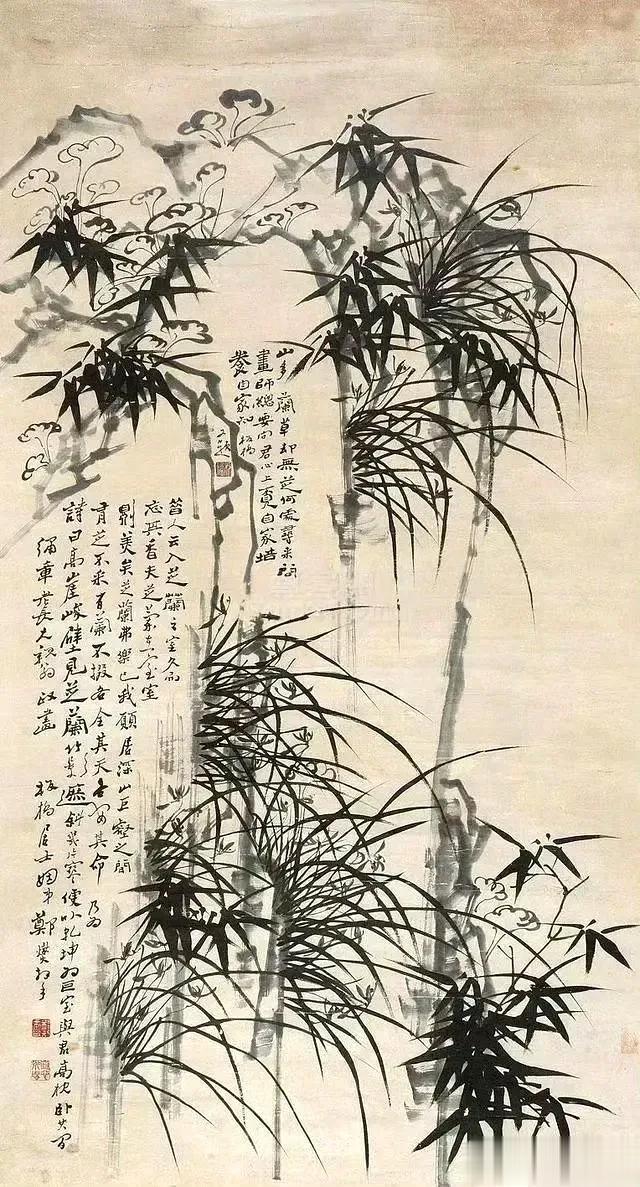 山多蘭草却無芝何處尋来問
畫師總要向君心上覓自家培
養自家知 板橋
又題
昔人云入芝蘭之室久而
忘其香夫芝蘭在室室
則美矣芝蘭弗樂也我願居深山巨壑之間
有芝不采有蘭不掇各全其天各安其命 乃為
詩曰高崖峻壁見芝蘭竹影遮斜幾片寒便以乾坤為巨室與君高枕卧其間
重老長 親翁政 板橋居士 弟鄭燮拜手